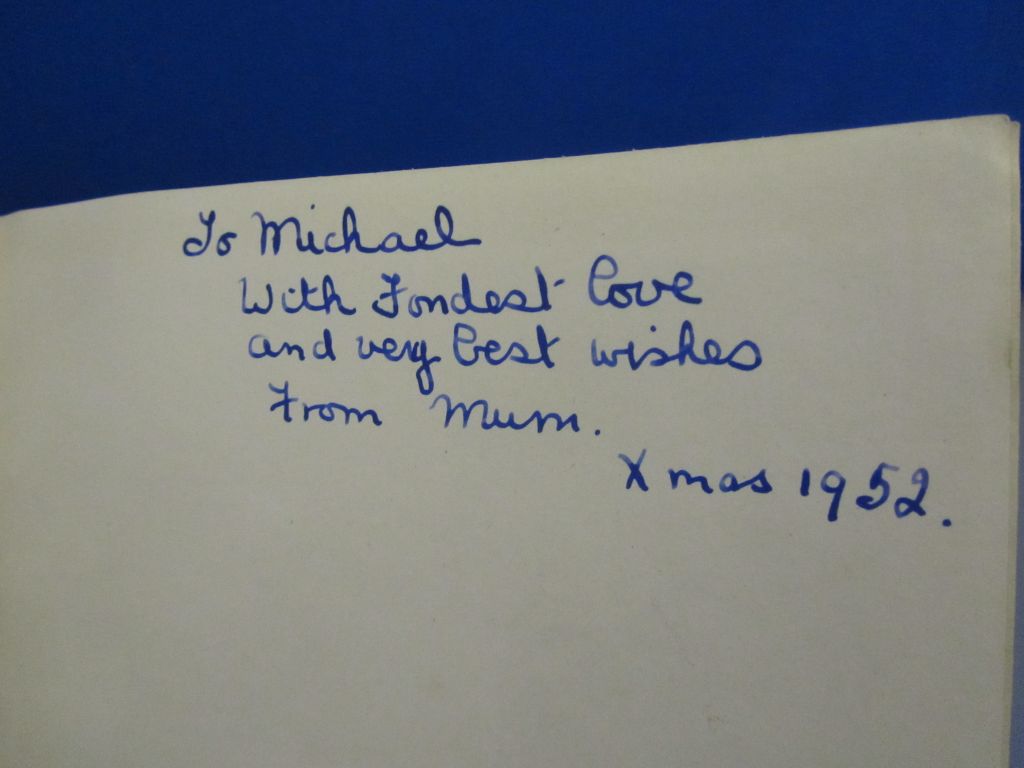 To Michael
With Fondest love
and very best wishes
From Mum.
Xmas 1952.